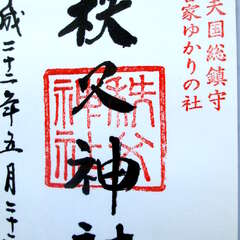 夫国総鎮守
宮家ゆかりの社
秩父神社
秩父神社
成二十二年五月二十